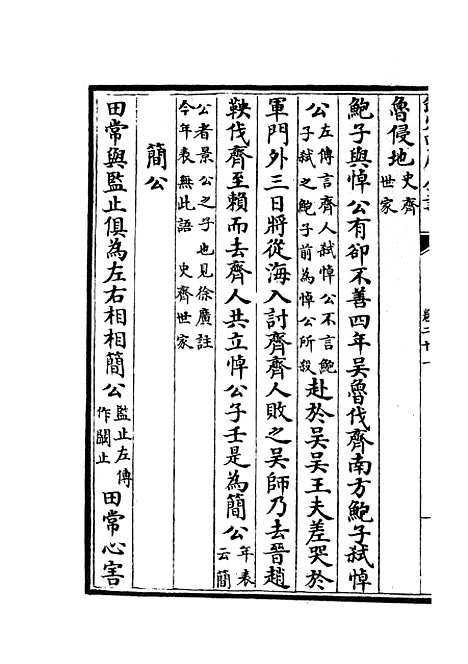 魯侵地史齊世家
鮑子與悼公有卻不善四年吳魯伐齊南方鮑子弒悼
公左傳言齊人弒悼公不言鮑子弒之鮑子前為悼公所殺赴於吳吳王夫差哭於
軍門外三日將從海入討齊齊人敗之吳師乃去晉趙
鞅伐齊至賴而去齊人共立悼公子壬是為簡公年表云簡
公者景公之子也見徐廣註今年表無此語 史齊世家
簡公
田常與監止俱為左右相相簡公監止左傳作闞止田常心害